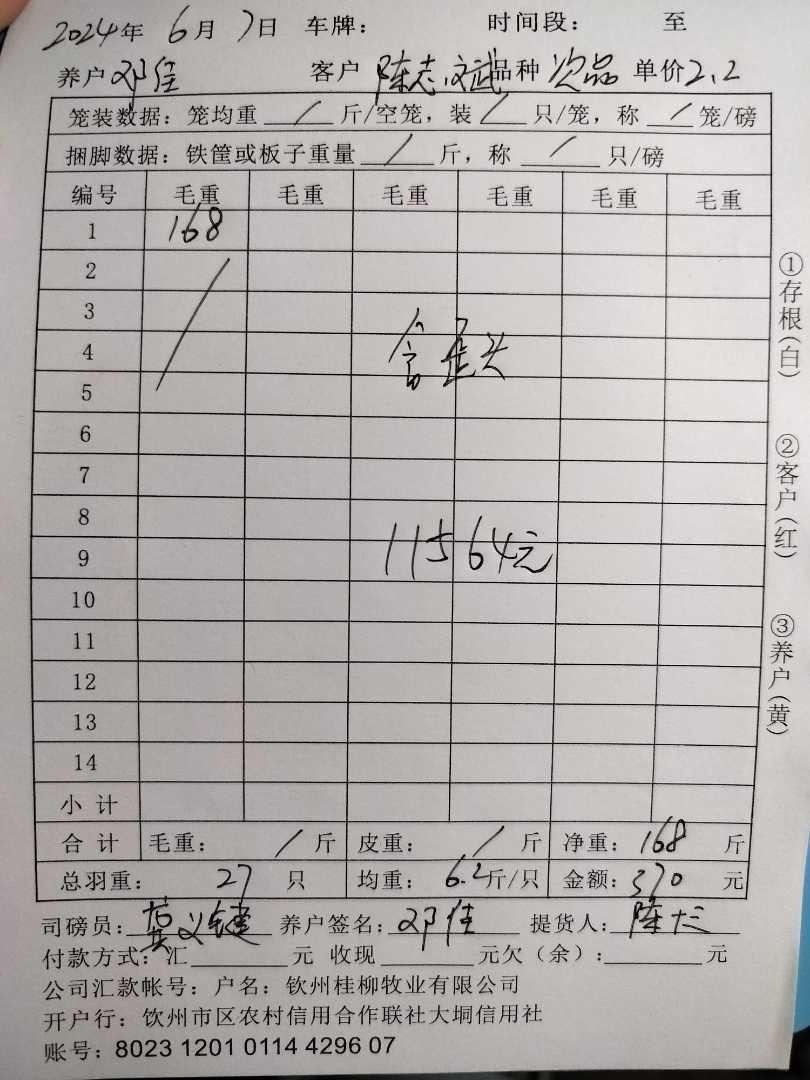 2024年 6月 7日 车牌： 时间段： 至
养户 邓佳 客户 陈志斌 品种 次品 单价2.2
笼装数据：笼均重 / 斤/空笼，装 / 只/笼，称 / 笼/磅
捆脚数据：铁筐或板子重量 / 斤，称 / 只/磅
编号 毛重 毛重 毛重 毛重 毛重 毛重
1 168
2
3
4 含歪头
5
6
7
8
9 11564元
10
11
12
13
14
小 计
合 计 毛重： / 斤 皮重： / 斤 净重： 168 斤
总羽重： 27 只 均重： 6.2斤/只 金额：370 元
司磅员： 养户签名：邓佳 提货人：陈
付款方式：汇 元 收现 元欠（余）： 元
公司汇款帐号：户名：钦州桂柳牧业有限公司
开户行：钦州市区农村信用合作联社大垌信用社
账号：8023 1201 0114 4296 07
①存根（白）
②客户（红）
③养户（黄）